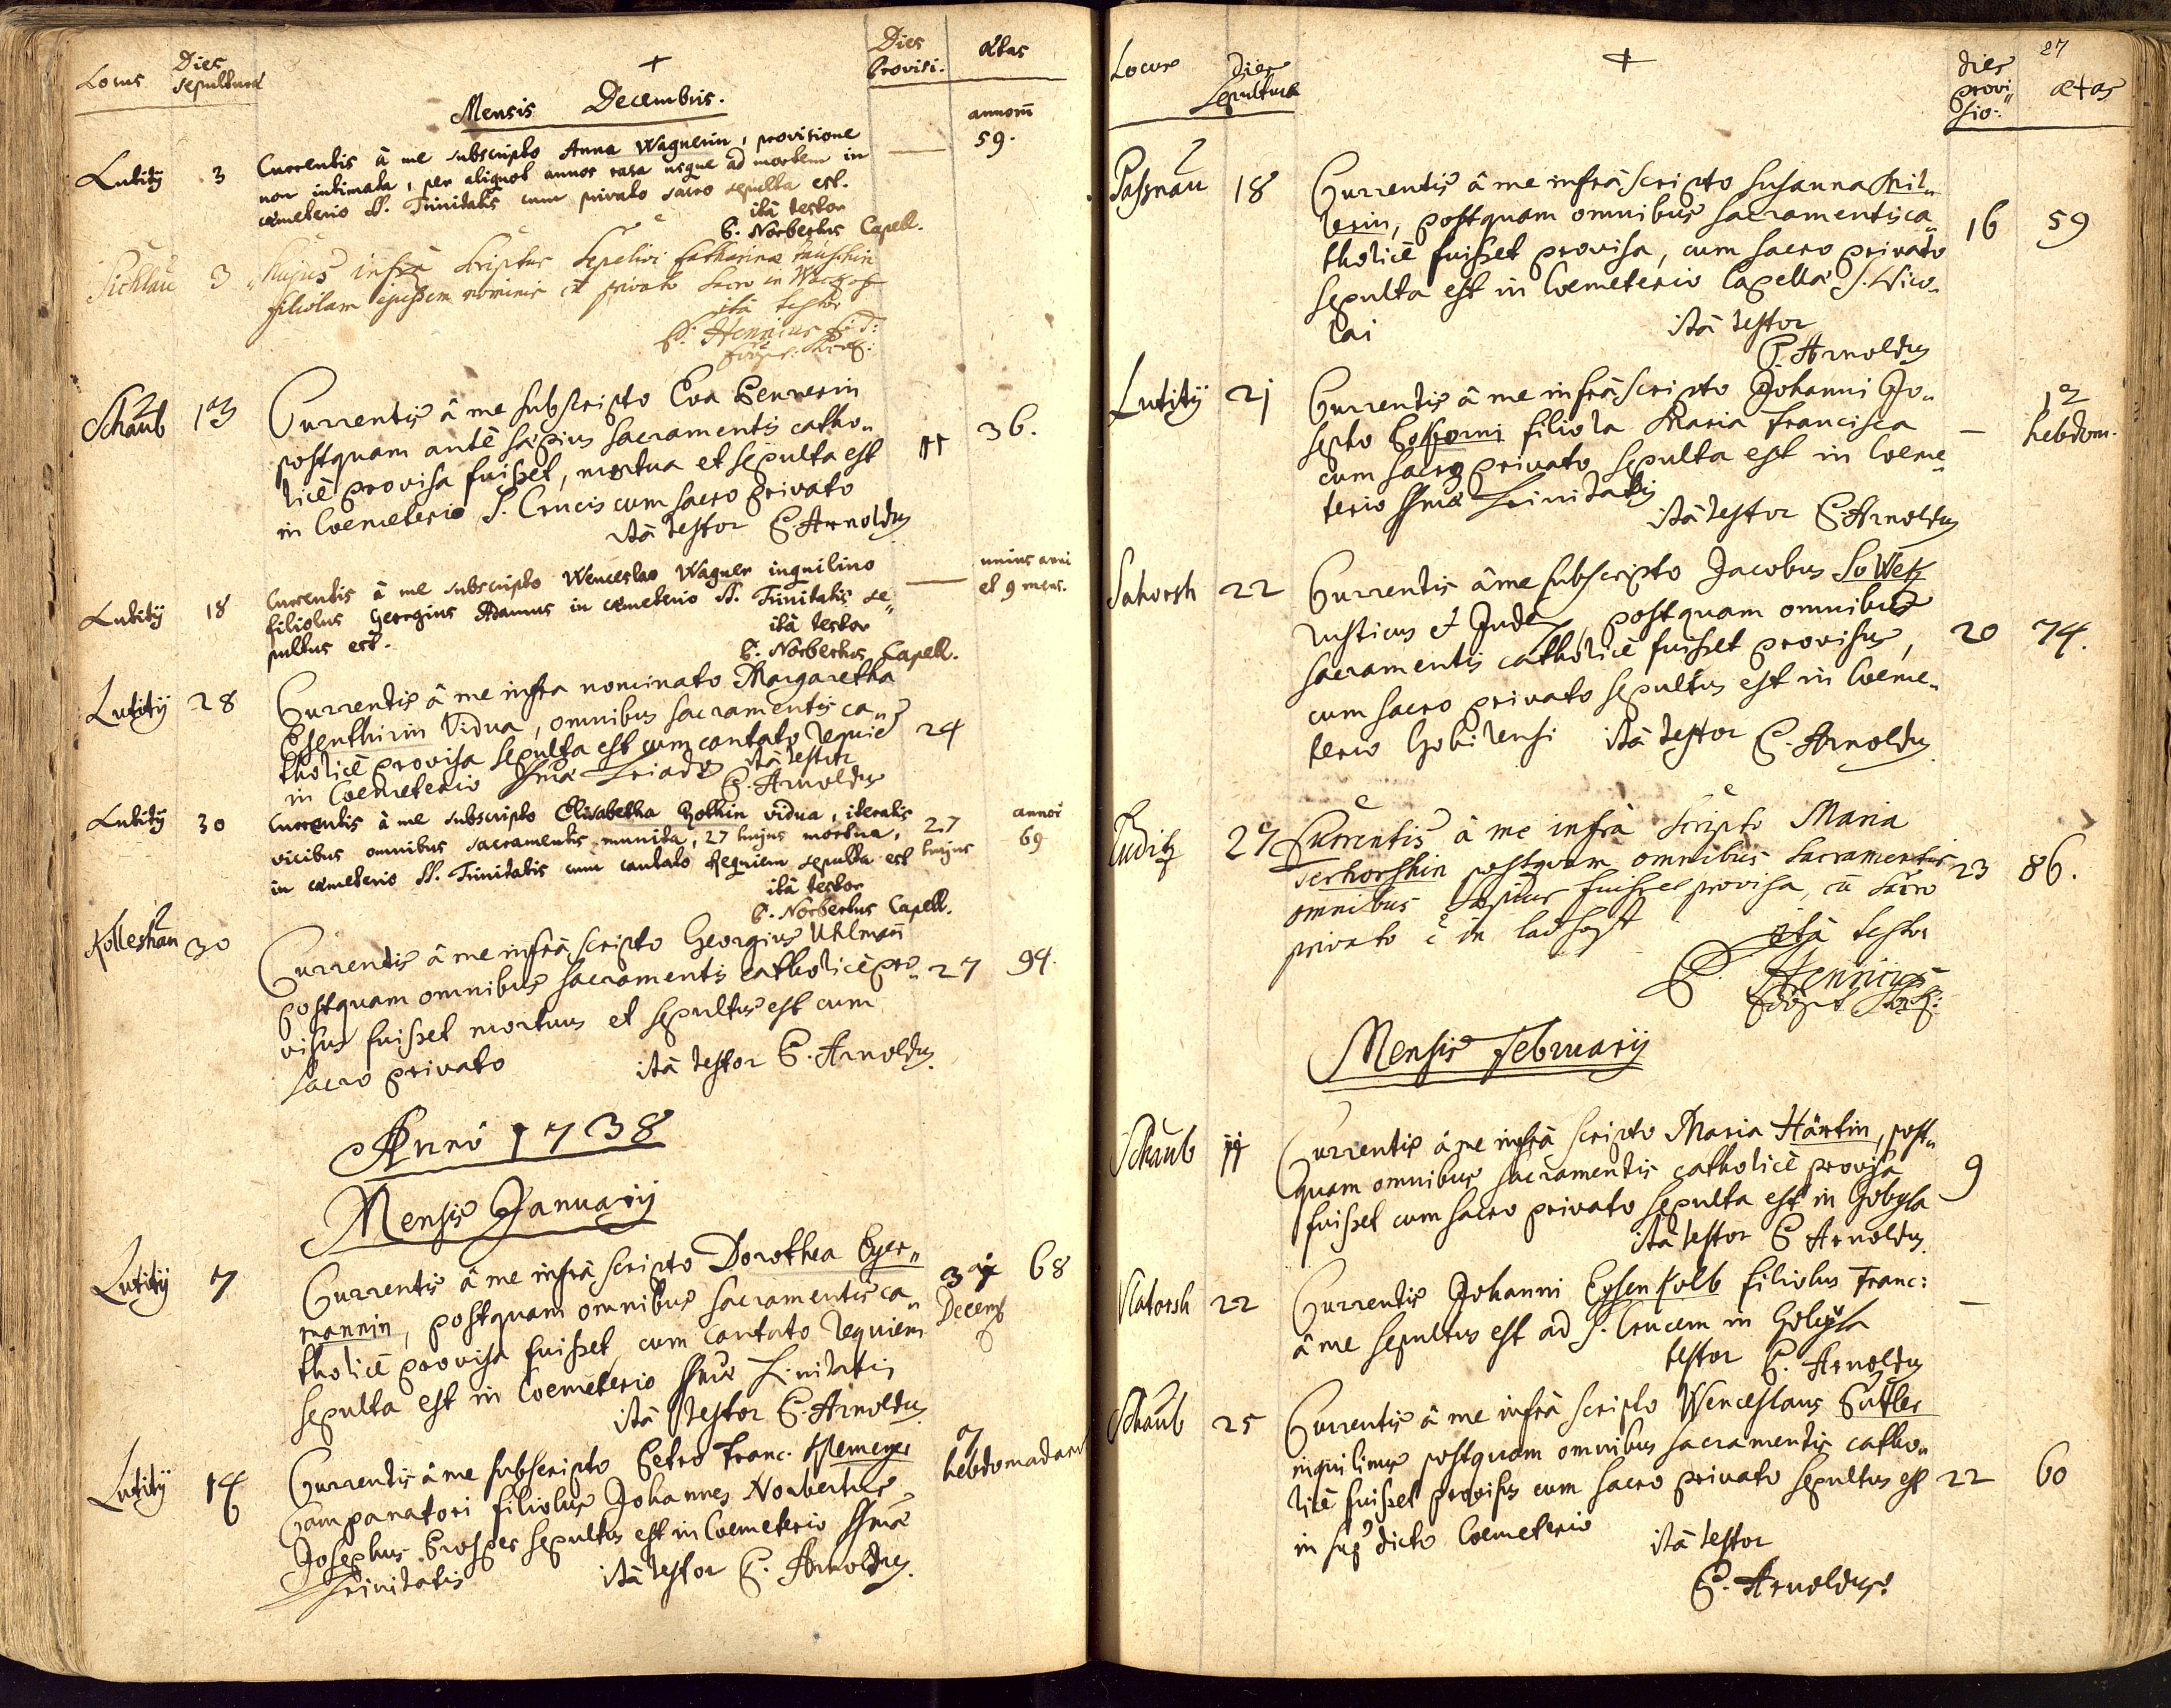 Locus
Dies sepulturæ
+
Dies Provisi.
Ætas
Mensis Decembris.
Lutity 3 Currentis à me subscripto Anna Wagnerin, provisione — annorū 59.
non intimata, per aliquot annos casa usque ad mortem in
cæmeterio SS. Trinitatis cum privato sacro sepulta est.
ità testor
P. Norbertus Capell.
Sichlau 3 Hujus infrà scriptus sepelivi Catharinæ
filiolam ejusdem nominis cū privato sacro in
ità testor
P. Henricus
Schaub 13 Currentis à me subscripto Eva Pennerin
postquam antè sæpius sacramentis catho„ 11 36.
licè provisa fuisset, mortua et sepulta est
in Coemeterio S. Crucis cum sacro privato
ità testor P. Arnoldus
Lutity 18 Currentis à me subscripto Wenceslao Wagner inquilino — unius anni et 9 mens.
filiolus Georgius Adamus in cæmeterio SS. Trinitatis se„
pultus est.
ità testor
P. Norbertus Capell.
Lutity 28 Currentis à me infra nominato Margaretha
Esenthirin Vidua, omnibus sacramentis ca„ 24
tholicè provisa sepulta est cum cantato requie
in Coemeterio SSmæ Triados ità testor
P. Arnoldus
Lutity 30 Currentis à me subscripto Elisabetha Gothin vidua, iteratis annorū
vicibus omnibus sacramentis munita, 27 hujus mortua, 27 hujus 69
in cæmeterio SS. Trinitatis cum cantato Requiem sepulta est
ità testor
P. Norbertus Capell.
Kolleshau 30 Currentis à me infrà scripto Georgius Uhlmañ
postquam omnibus sacramentis catholicè pro„ 27 94.
visus fuisset mortuus et sepultus est cum
sacro privato ità testor P. Arnoldus.
Anno 1738
Mensis Januarij
Lutity 7 Currentis à me infrà scripto Dorothea Eyer„ 31 Decemb 68
mannin, postquam omnibus sacramentis ca„
tholicè provisa fuisset, cum cantato requiem
sepulta est in Coemeterio SSmæ Trinitatis
ità testor P. Arnoldus
Lutity 14 Currentis à me subscripto Petro Franc. 7 hebdomadarū
Campanatori filiolus Johannes Norbertus
Josephus Prosper sepultus est in Coemeterio SSmæ
Trinitatis ità testor P. Arnoldus.
27
Locus
Dies Sepulturæ
+
dies provi„ sio:
ætas
Passnau 18 Currentis à me infrà scripto Susanna Mil„
lerin, postquam omnibus sacramentis ca„ 16 59
tholicè fuisset provisa, cum sacro privato
sepulta est in Coemeterio Capellæ S. Nico„
lai ità testor
P. Arnoldus
Lutity 21 Currentis à me infrà scripto Johanni Jo„ 12
sepho filiola Maria Francisca — hebdom.
cum sacro privato sepulta est in Coeme„
terio SSmæ Trinitatis
ità testor P. Arnoldus
Sahorsh 22 Currentis à me subscripto Jacobus SoWek
rusticus et Judex, postquam omnibus
sacramentis catholicè fuisset provisus, 20 74.
cum sacro privato sepultus est in Coeme„
terio Gobilensi ità testor P. Arnoldus
Luditz 27 Currentis à me infrà scripto Maria
Serhorshin postquam omnibus sacramentis 23 86.
omnibus sæpius fuisset provisa, cū sacro
privato ē in
ità testor
P. Henricus
Mensis Februarij
Schaub 11 Currentis à me infrà scripto Maria Härtin, post„
quam omnibus sacramentis catholicè provisa 9
fuisset cum sacro privato sepulta est in Gobyla
ità testor P Arnoldus
Nlatorsh 22 Currentis Johanni Eysenkolb filiolus Franc: —
à me sepultus est ad S. Crucem in Gobyla
testor P. Arnoldus
Schaub 25 Currentis à me infrà scripto Wenceslaus Putler
inquilinus postquam omnibus sacramentis catho„
licè fuisset provisus cum sacro privato sepultus est 22 60
in sup dicto Coemeterio
ità testor
P. Arnoldus.